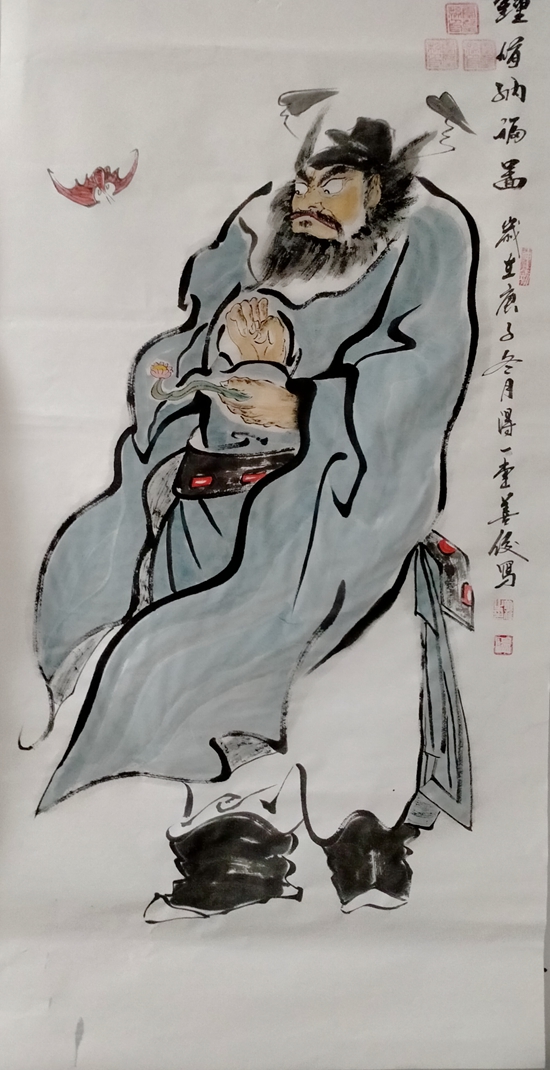 鍾馗納福圖 歲在庚子冬月得一堂善俊寫